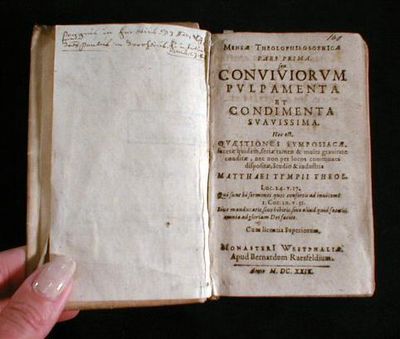 168
MENSÆ THEOLOPHILOSOPHICÆ
PARS PRIMA.
seu
CONVIVIORVM
PVLPAMENTA
ET
CONDIMENTA
SVAVISSIMA.
Hoc est,
QVÆSTIONES SYMPOSIACÆ,
facetæ quidem, seriæ tamen & multa gravitate
conditæ, nec non per locos communes
dispositæ, studio & industria
MATTHÆI TYMPII THEOL.
Luc. 24. v. 17.
Qui sunt hi sermones quos confertis ad invicem?
1. Cor. 10. v. 31.
Sive manducatis, sive bibitis, sive aliud quid facitis:
omnia ad gloriam Dei facite.
Cum licentia Superiorum.
MONASTERI WESTPHALIÆ.
Apud Bernardum Raesfeldium.
Anno M. DC. XXIX.